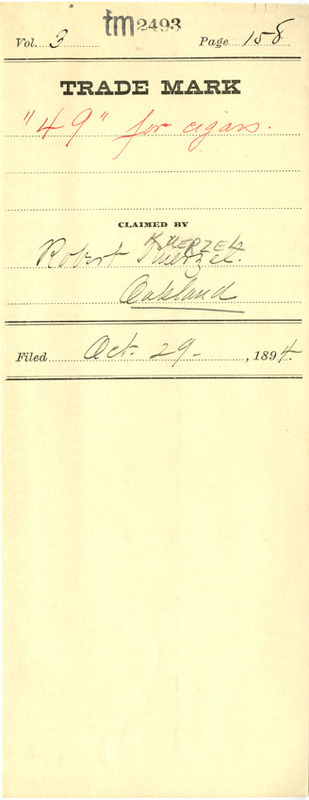 tm2493
Vol. 3 Page 158
TRADE MARK
"49" for cigars.
CLAIMED BY
KUERZEL
Robert Kuerzel.
Oakland
Filed Oct. 29- , 1894.